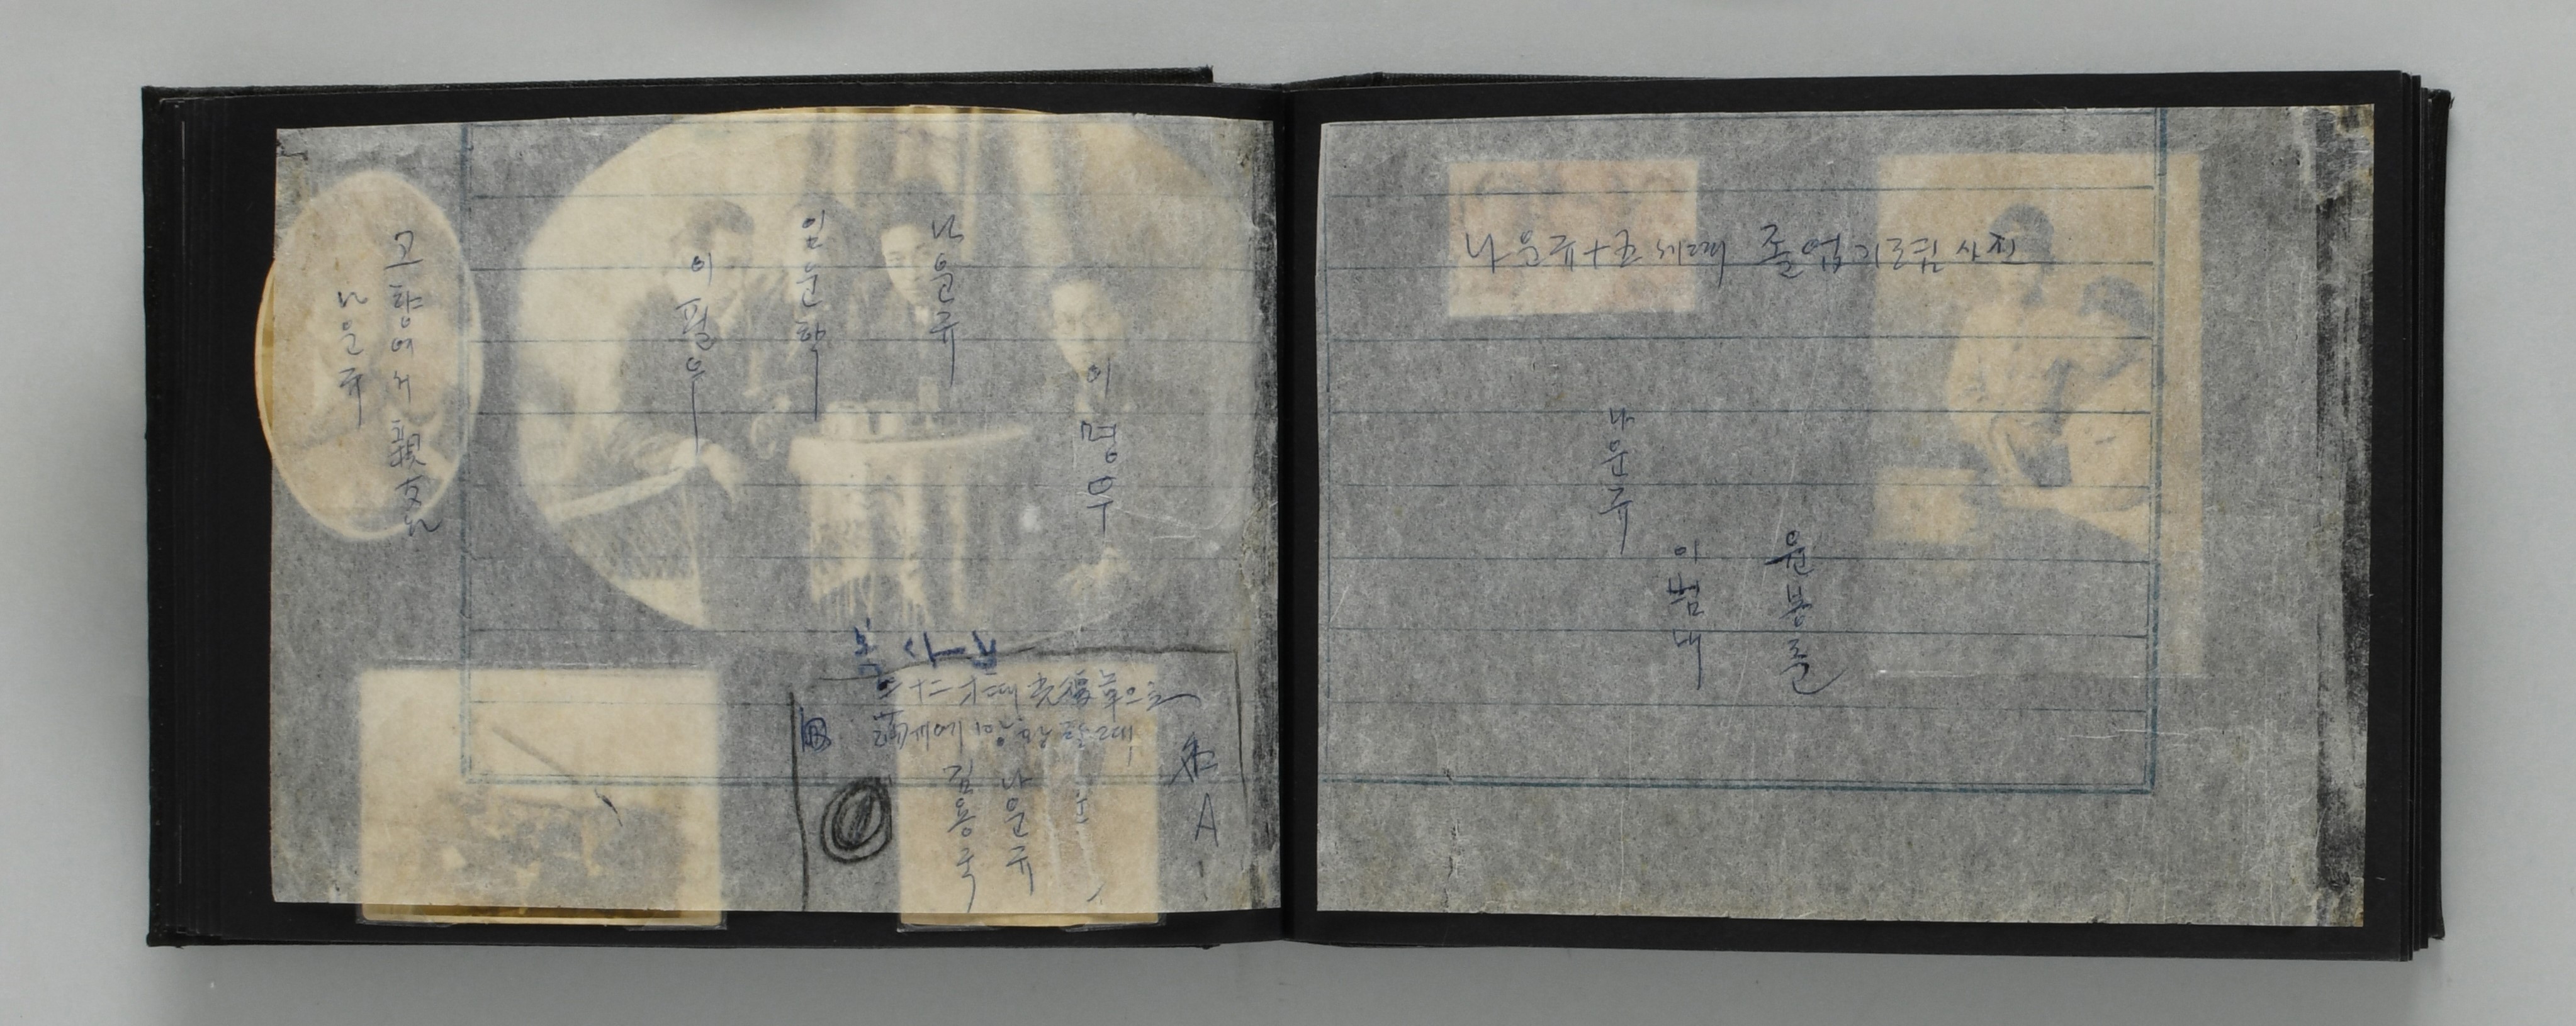 고향에서 親友와
나운규
이필우
임운학
나운규
이명우
복사한
二十二才때 光復軍으로
나운규
김용국
A
나운규 十五세때 졸업기렴사진
나운규
이범래
윤봉춘